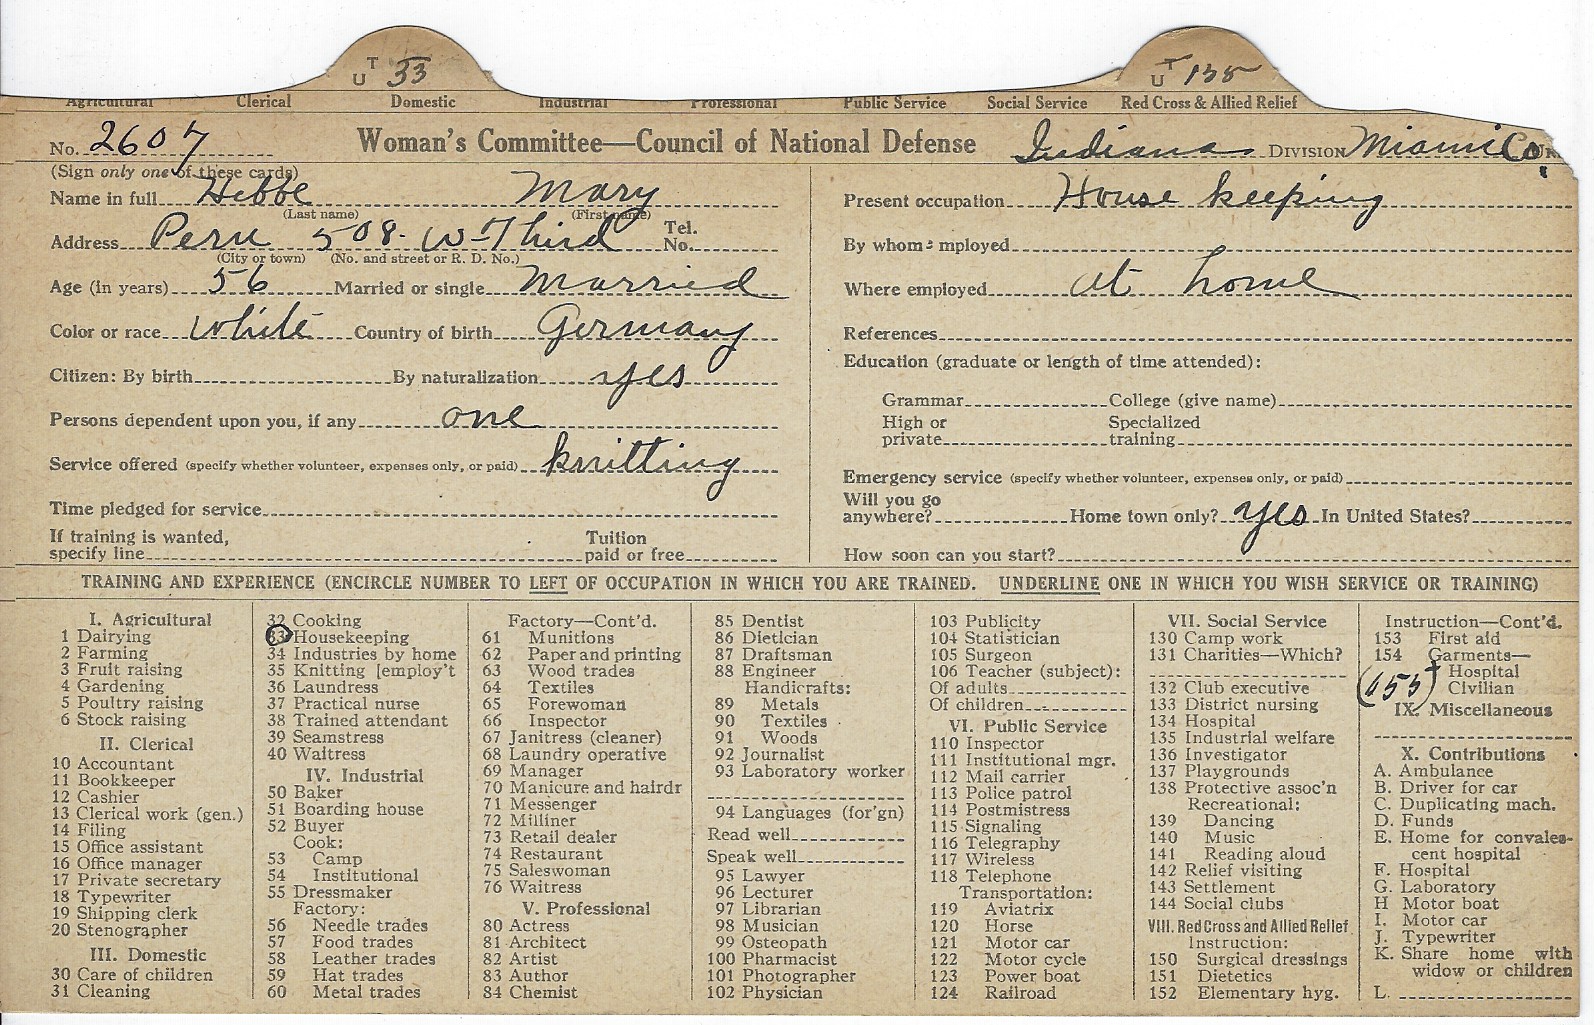 T U 33
T U 155
Agricultural Clerical Domestic Industrial Professional Public Service Social Service Red Cross & Allied Relief
No. 2607
Woman's Committee—Council of National Defense
Indiana DIVISION Miami Co. UN
(Sign only one of these cards)
Name in full Hebbe Mary
(Last name) (First name)
Address Peru 508- W-Third Tel. No.
(City or town) (No. and street or R. D. No.)
Age (in years) 56 Married or single Married
Color or race White Country of birth Germany
Citizen: By birth By naturalization yes
Persons dependent upon you, if any one
Service offered (specify whether volunteer, expenses only, or paid) knitting
Time pledged for service
If training is wanted,
specify line Tuition paid or free
Present occupation House keeping
By whom employed
Where employed at home
References
Education (graduate or length of time attended):
Grammar College (give name)
High or private Specialized training
Emergency service (specify whether volunteer, expenses only, or paid)
Will you go anywhere? Home town only? yes In United States?
How soon can you start?
TRAINING AND EXPERIENCE (ENCIRCLE NUMBER TO LEFT OF OCCUPATION IN WHICH YOU ARE TRAINED. UNDERLINE ONE IN WHICH YOU WISH SERVICE OR TRAINING)
I. Agricultural
1 Dairying
2 Farming
3 Fruit raising
4 Gardening
5 Poultry raising
6 Stock raising
II. Clerical
10 Accountant
11 Bookkeeper
12 Cashier
13 Clerical work (gen.)
14 Filing
15 Office assistant
16 Office manager
17 Private secretary
18 Typewriter
19 Shipping clerk
20 Stenographer
III. Domestic
30 Care of children
31 Cleaning
32 Cooking
33 Housekeeping
34 Industries by home
35 Knitting [employ't
36 Laundress
37 Practical nurse
38 Trained attendant
39 Seamstress
40 Waitress
IV. Industrial
50 Baker
51 Boarding house
52 Buyer
Cook:
53 Camp
54 Institutional
55 Dressmaker
Factory:
56 Needle trades
57 Food trades
58 Leather trades
59 Hat trades
60 Metal trades
Factory—Cont'd.
61 Munitions
62 Paper and printing
63 Wood trades
64 Textiles
65 Forewoman
66 Inspector
67 Janitress (cleaner)
68 Laundry operative
69 Manager
70 Manicure and hairdr
71 Messenger
72 Milliner
73 Retail dealer
74 Restaurant
75 Saleswoman
76 Waitress
V. Professional
80 Actress
81 Architect
82 Artist
83 Author
84 Chemist
85 Dentist
86 Dietician
87 Draftsman
88 Engineer
Handicrafts:
89 Metals
90 Textiles
91 Woods
92 Journalist
93 Laboratory worker
94 Languages (for'gn)
Read well
Speak well
95 Lawyer
96 Lecturer
97 Librarian
98 Musician
99 Osteopath
100 Pharmacist
101 Photographer
102 Physician
103 Publicity
104 Statistician
105 Surgeon
106 Teacher (subject):
Of adults
Of children
VI. Public Service
110 Inspector
111 Institutional mgr.
112 Mail carrier
113 Police patrol
114 Postmistress
115 Signaling
116 Telegraphy
117 Wireless
118 Telephone
Transportation:
119 Aviatrix
120 Horse
121 Motor car
122 Motor cycle
123 Power boat
124 Railroad
VII. Social Service
130 Camp work
131 Charities—Which?
132 Club executive
133 District nursing
134 Hospital
135 Industrial welfare
136 Investigator
137 Playgrounds
138 Protective assoc'n
Recreational:
139 Dancing
140 Music
141 Reading aloud
142 Relief visiting
143 Settlement
144 Social clubs
VIII. Red Cross and Allied Relief
Instruction:
150 Surgical dressings
151 Dietetics
152 Elementary hyg.
Instruction—Cont'd.
153 First aid
154 Garments—
Hospital
(155) Civilian
IX. Miscellaneous
X. Contributions
A. Ambulance
B. Driver for car
C. Duplicating mach.
D. Funds
E. Home for convales-
cent hospital
F. Hospital
G. Laboratory
H Motor boat
I. Motor car
J. Typewriter
K. Share home with
widow or children
L.